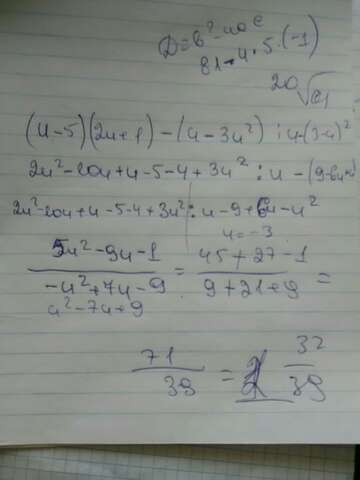 D=b²-4ac
81-4·5·(-1)
20√101
(u-5)(2u+1)-(4-3u²):u-(3-u)²
2u²-10u+u-5-4+3u²:u-(9-6u+u²)
2u²-10u+u-5-4+3u²:u-9+6u-u²
u=-3
5u²-9u-1 / -u²+7u-9 = 45+27-1 / 9+21+9 =
u²-7u+9
71/39 = 32/39